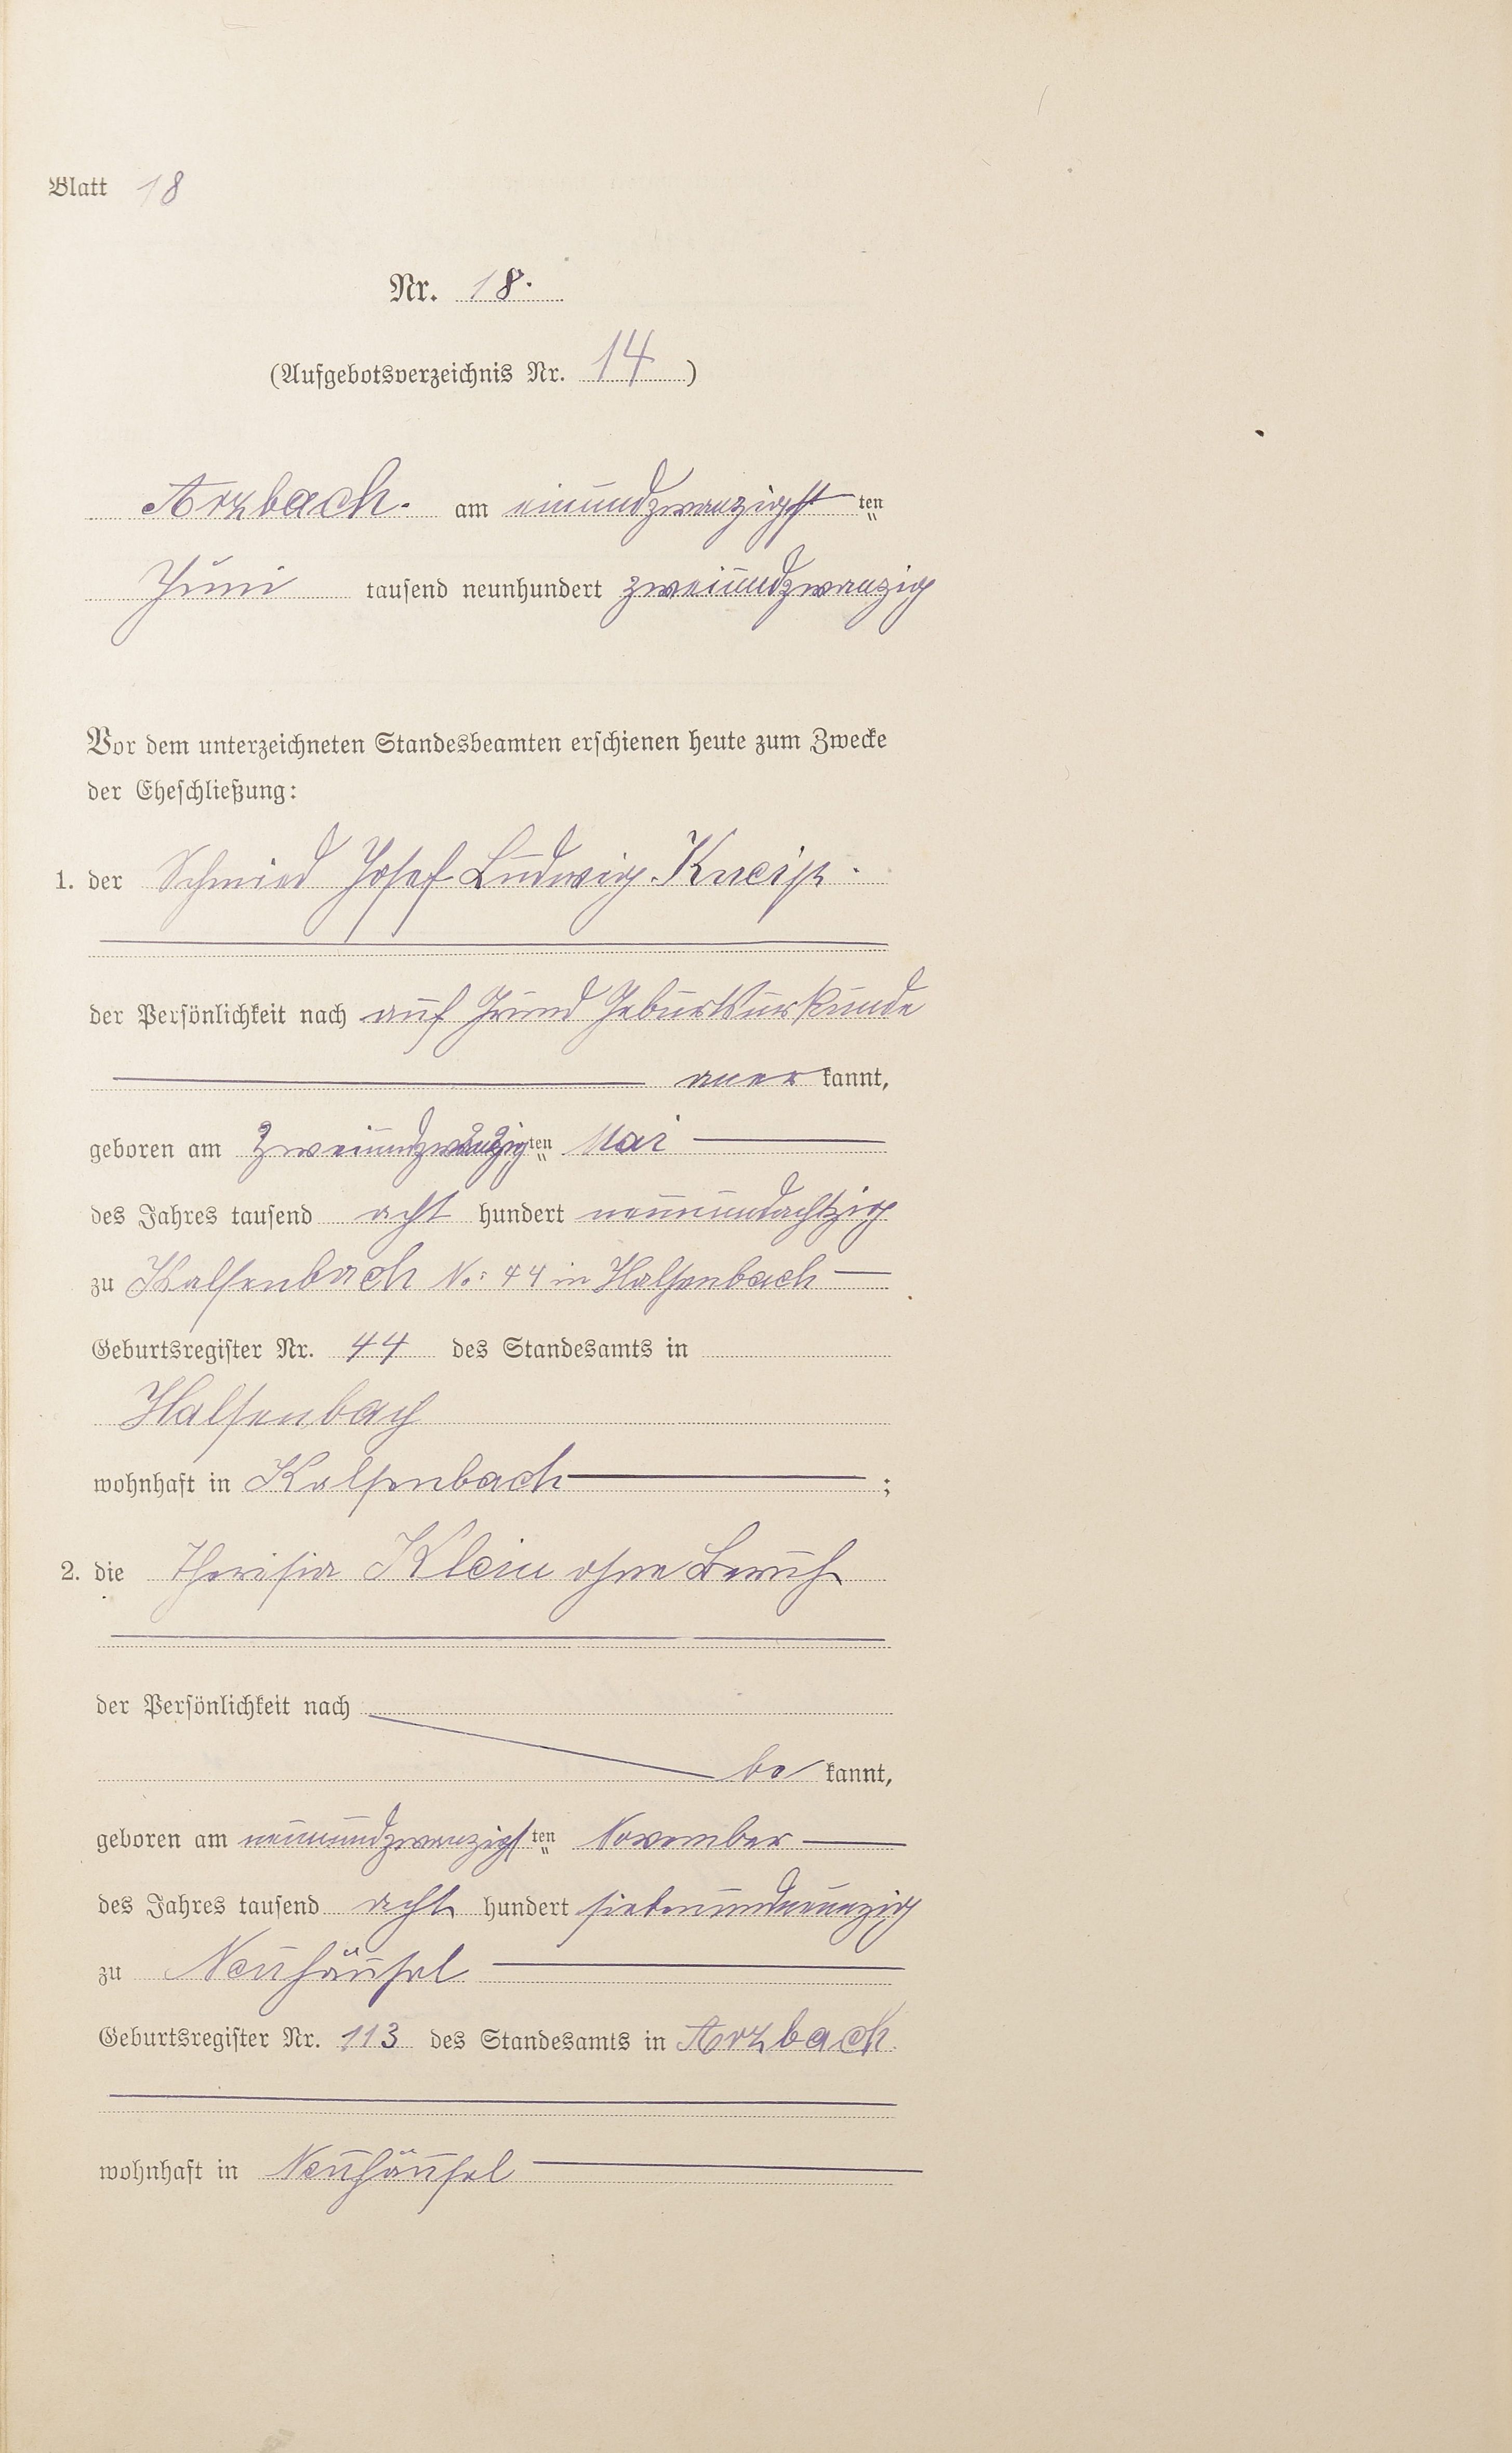 Blatt 18
Nr. 18.
(Aufgebotsverzeichnis Nr. 14)
Arzbach. am einundzwanzigst ten
Juni tausend neunhundert zweiundzwanzig
Vor dem unterzeichneten Standesbeamten erschienen heute zum Zwecke
der Eheschließung:
1. der Schmied Josef Ludwig Kneip.
der Persönlichkeit nach auf Grund Geburtsurkunde
aner kannt,
geboren am Zweiundzwanzig ten Mai
des Jahres tausend acht hundert neunundachtzig
zu Halsenbach No: 44 in Halsenbach
Geburtsregister Nr. 44 des Standesamts in
Halsenbach
wohnhaft in Halsenbach ;
2. die Theresia Klein ohne Beruf
der Persönlichkeit nach
be kannt,
geboren am neunundzwanzigst ten November
des Jahres tausend acht hundert siebenundneunzig
zu Neuhäusel
Geburtsregister Nr. 113 des Standesamts in Arzbach.
wohnhaft in Neuhäusel